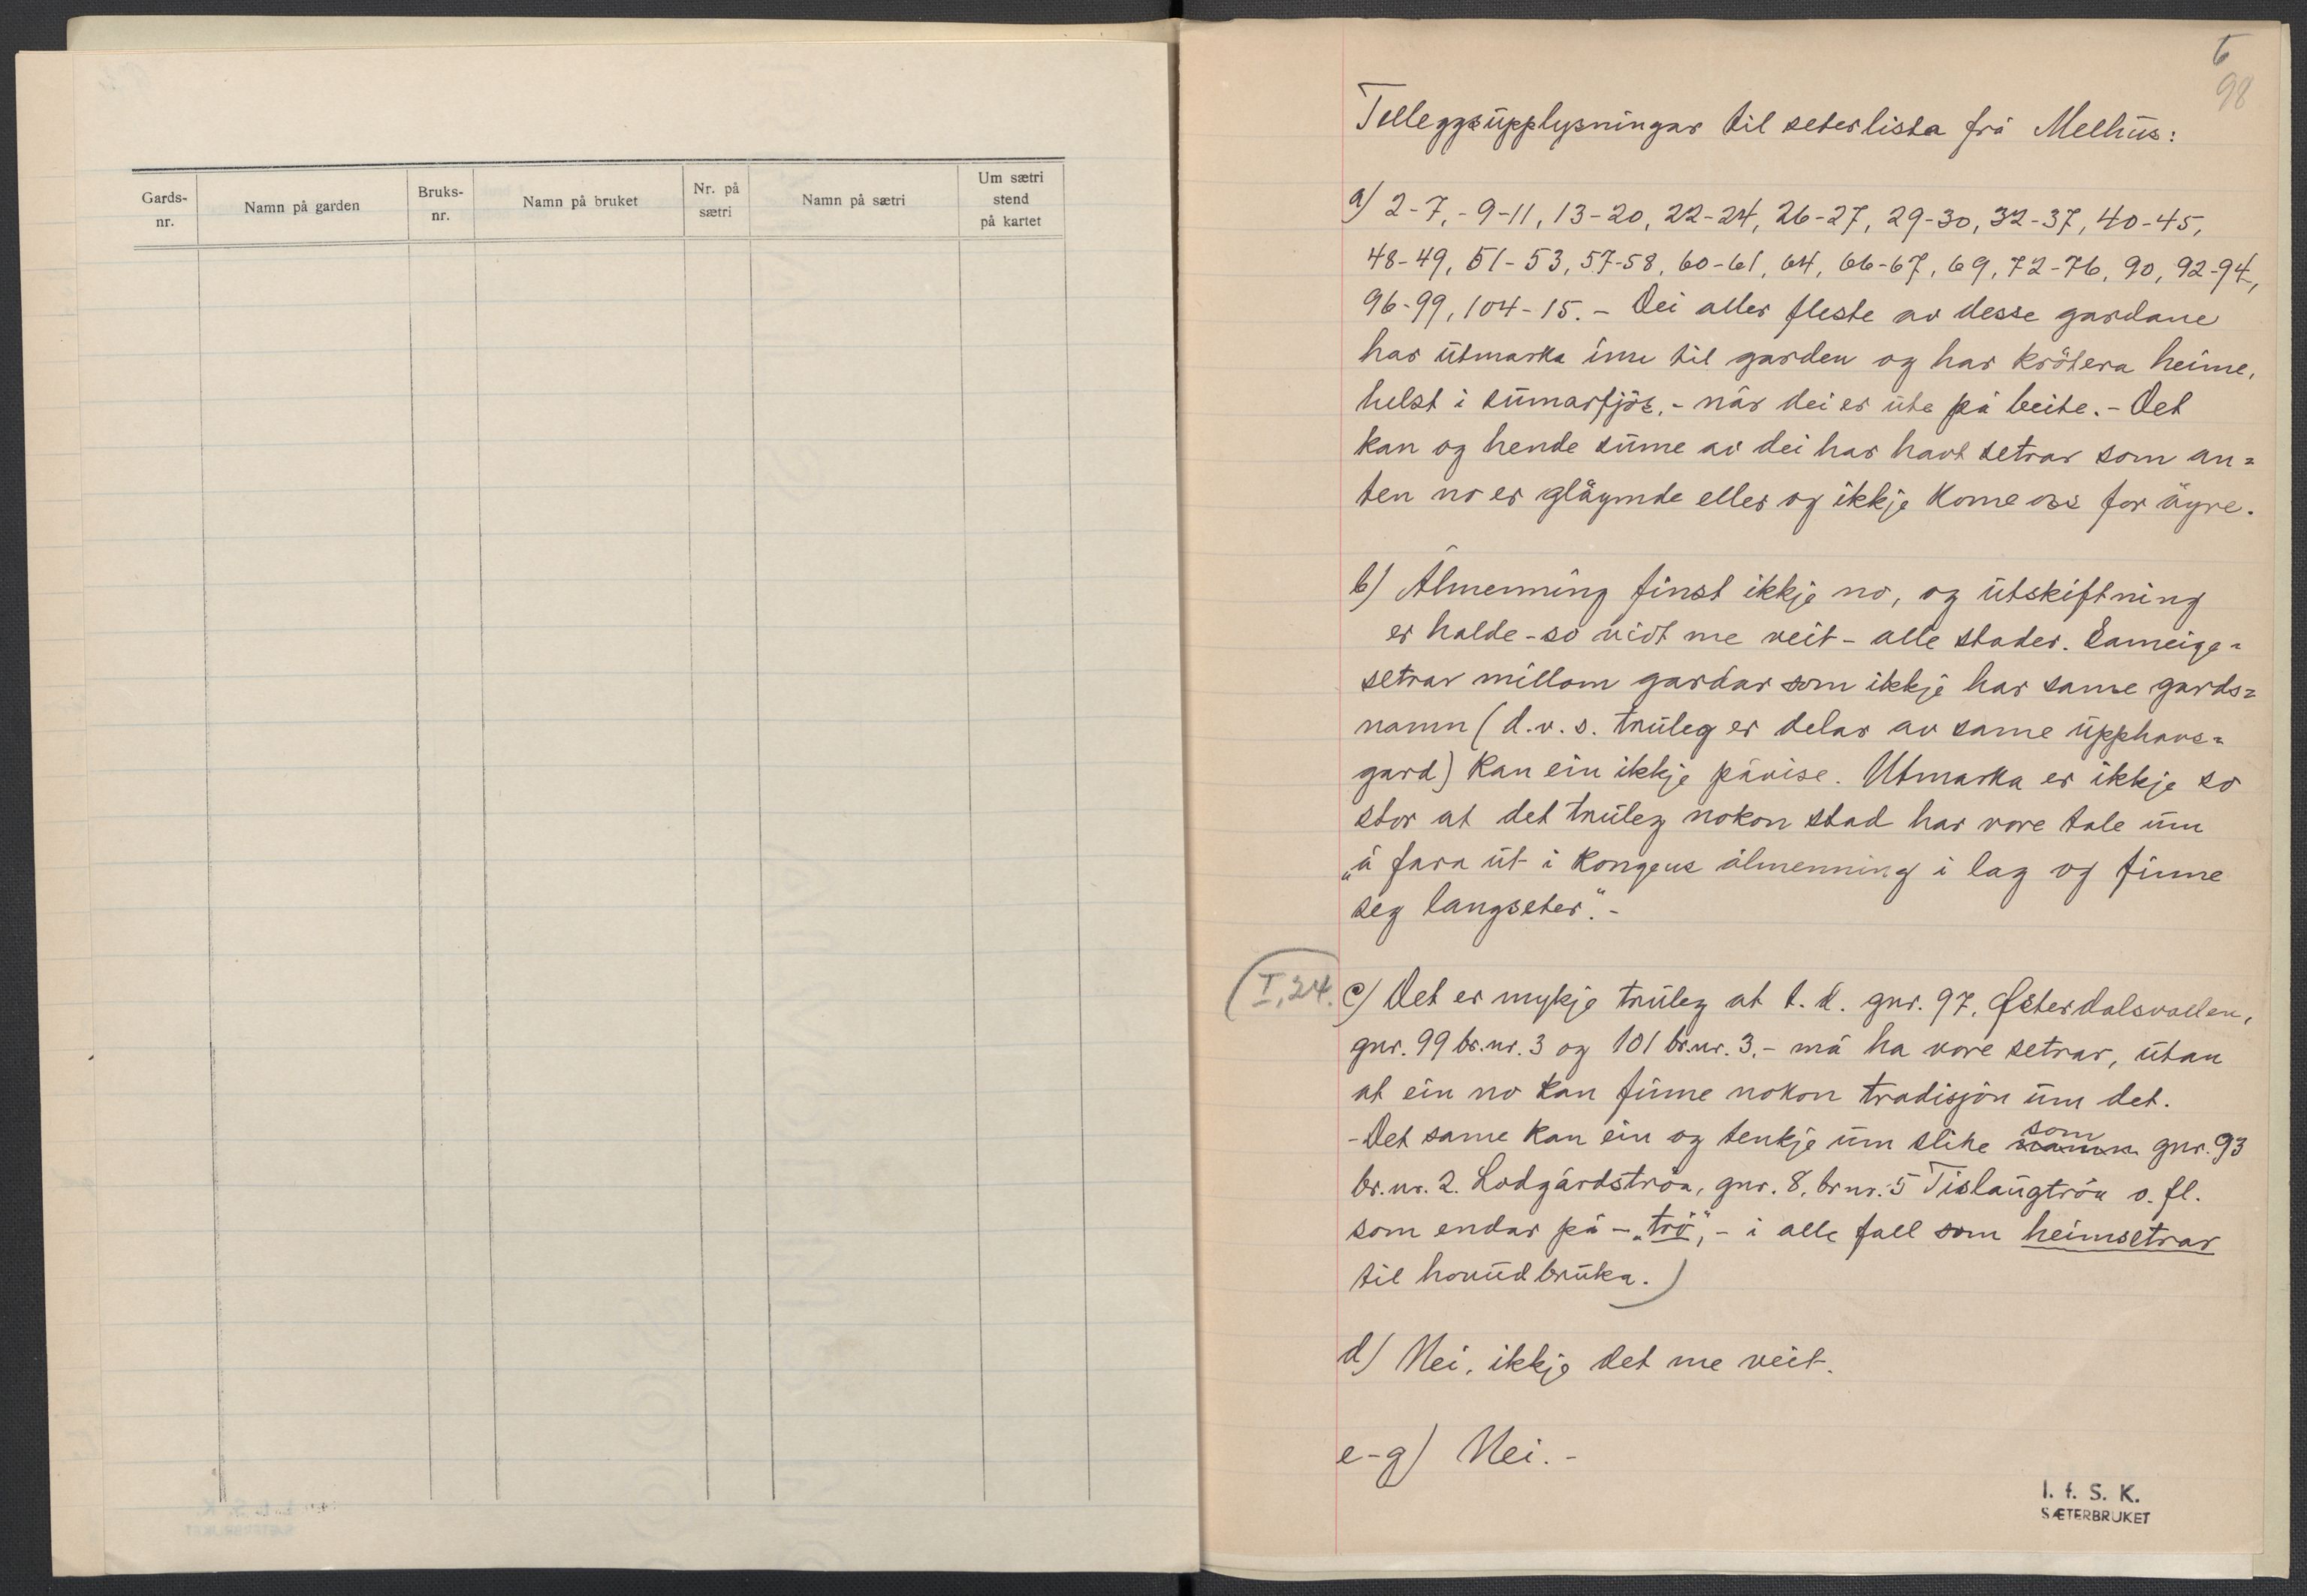 Gards-
nr.
Namn på garden
Bruks-
nr.
Namn på bruket
Nr. på
sætri
Namn på sætri
Um sætri
stend
på kartet
6
98
Tilleggsupplysningar til seterlista frå Melhus:
a) 2-7, - 9-11, 13-20, 22-24, 26-27, 29-30, 32-37, 40-45,
48-49, 51-53, 57-58, 60-61, 64, 66-67, 69, 72-76, 90, 92-94,
96-99, 104-15. - Dei aller fleste av desse gardane
har utmarka inn til garden og har krøtera heime,
helst i sumarfjøs, - når dei er ute på beite. - Det
kan og hende sume av dei har havt setrar som an=
ten no er gløymde eller og ikkje kome oss for øyre.
b) Ålmenning finst ikkje no, og utskiftning
er halde - so vidt me veit - alle stader. Sameige=
setrar millom gardar som ikkje har same gards=
namn (d.v.s. truleg er delar av same upphavs=
gard) kan ein ikkje påvise. Utmarka er ikkje so
stor at det truleg nokon stad har vore tale um
„å fara ut i kongens ålmenning i lag og finne
seg langseter". -
(I, 24.
c) Det er mykje truleg at t.d. gnr. 97, Østerdalsvollen,
gnr. 99 br.nr. 3 og 101 br.nr. 3, - må ha vore setrar, utan
at ein no kan finne nokon tradisjon um det.
- Det same kan ein og tenkje um slike namn som gnr. 93
br.nr. 2. Lodgårdstrøa, gnr. 8, br.nr. 5 Tislaugtrøa o.fl.
som endar på - „trø", - i alle fall som heimsetrar
til hovudbruka.)
d) Nei, ikkje det me veit.
e-g) Nei. -
I. f. S. K.
SÆTERBRUKET